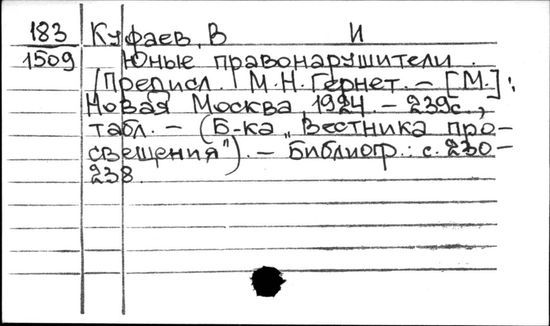 183 Куфаев, В И
1509 Юные правонарушители.
/Предисл. М.Н. Гернет. – [М.]:
Новая Москва, 1924. – 239с.,
табл. – (Б-ка „Вестника про-
свещения"). – Библиогр.: с. 230-
238.